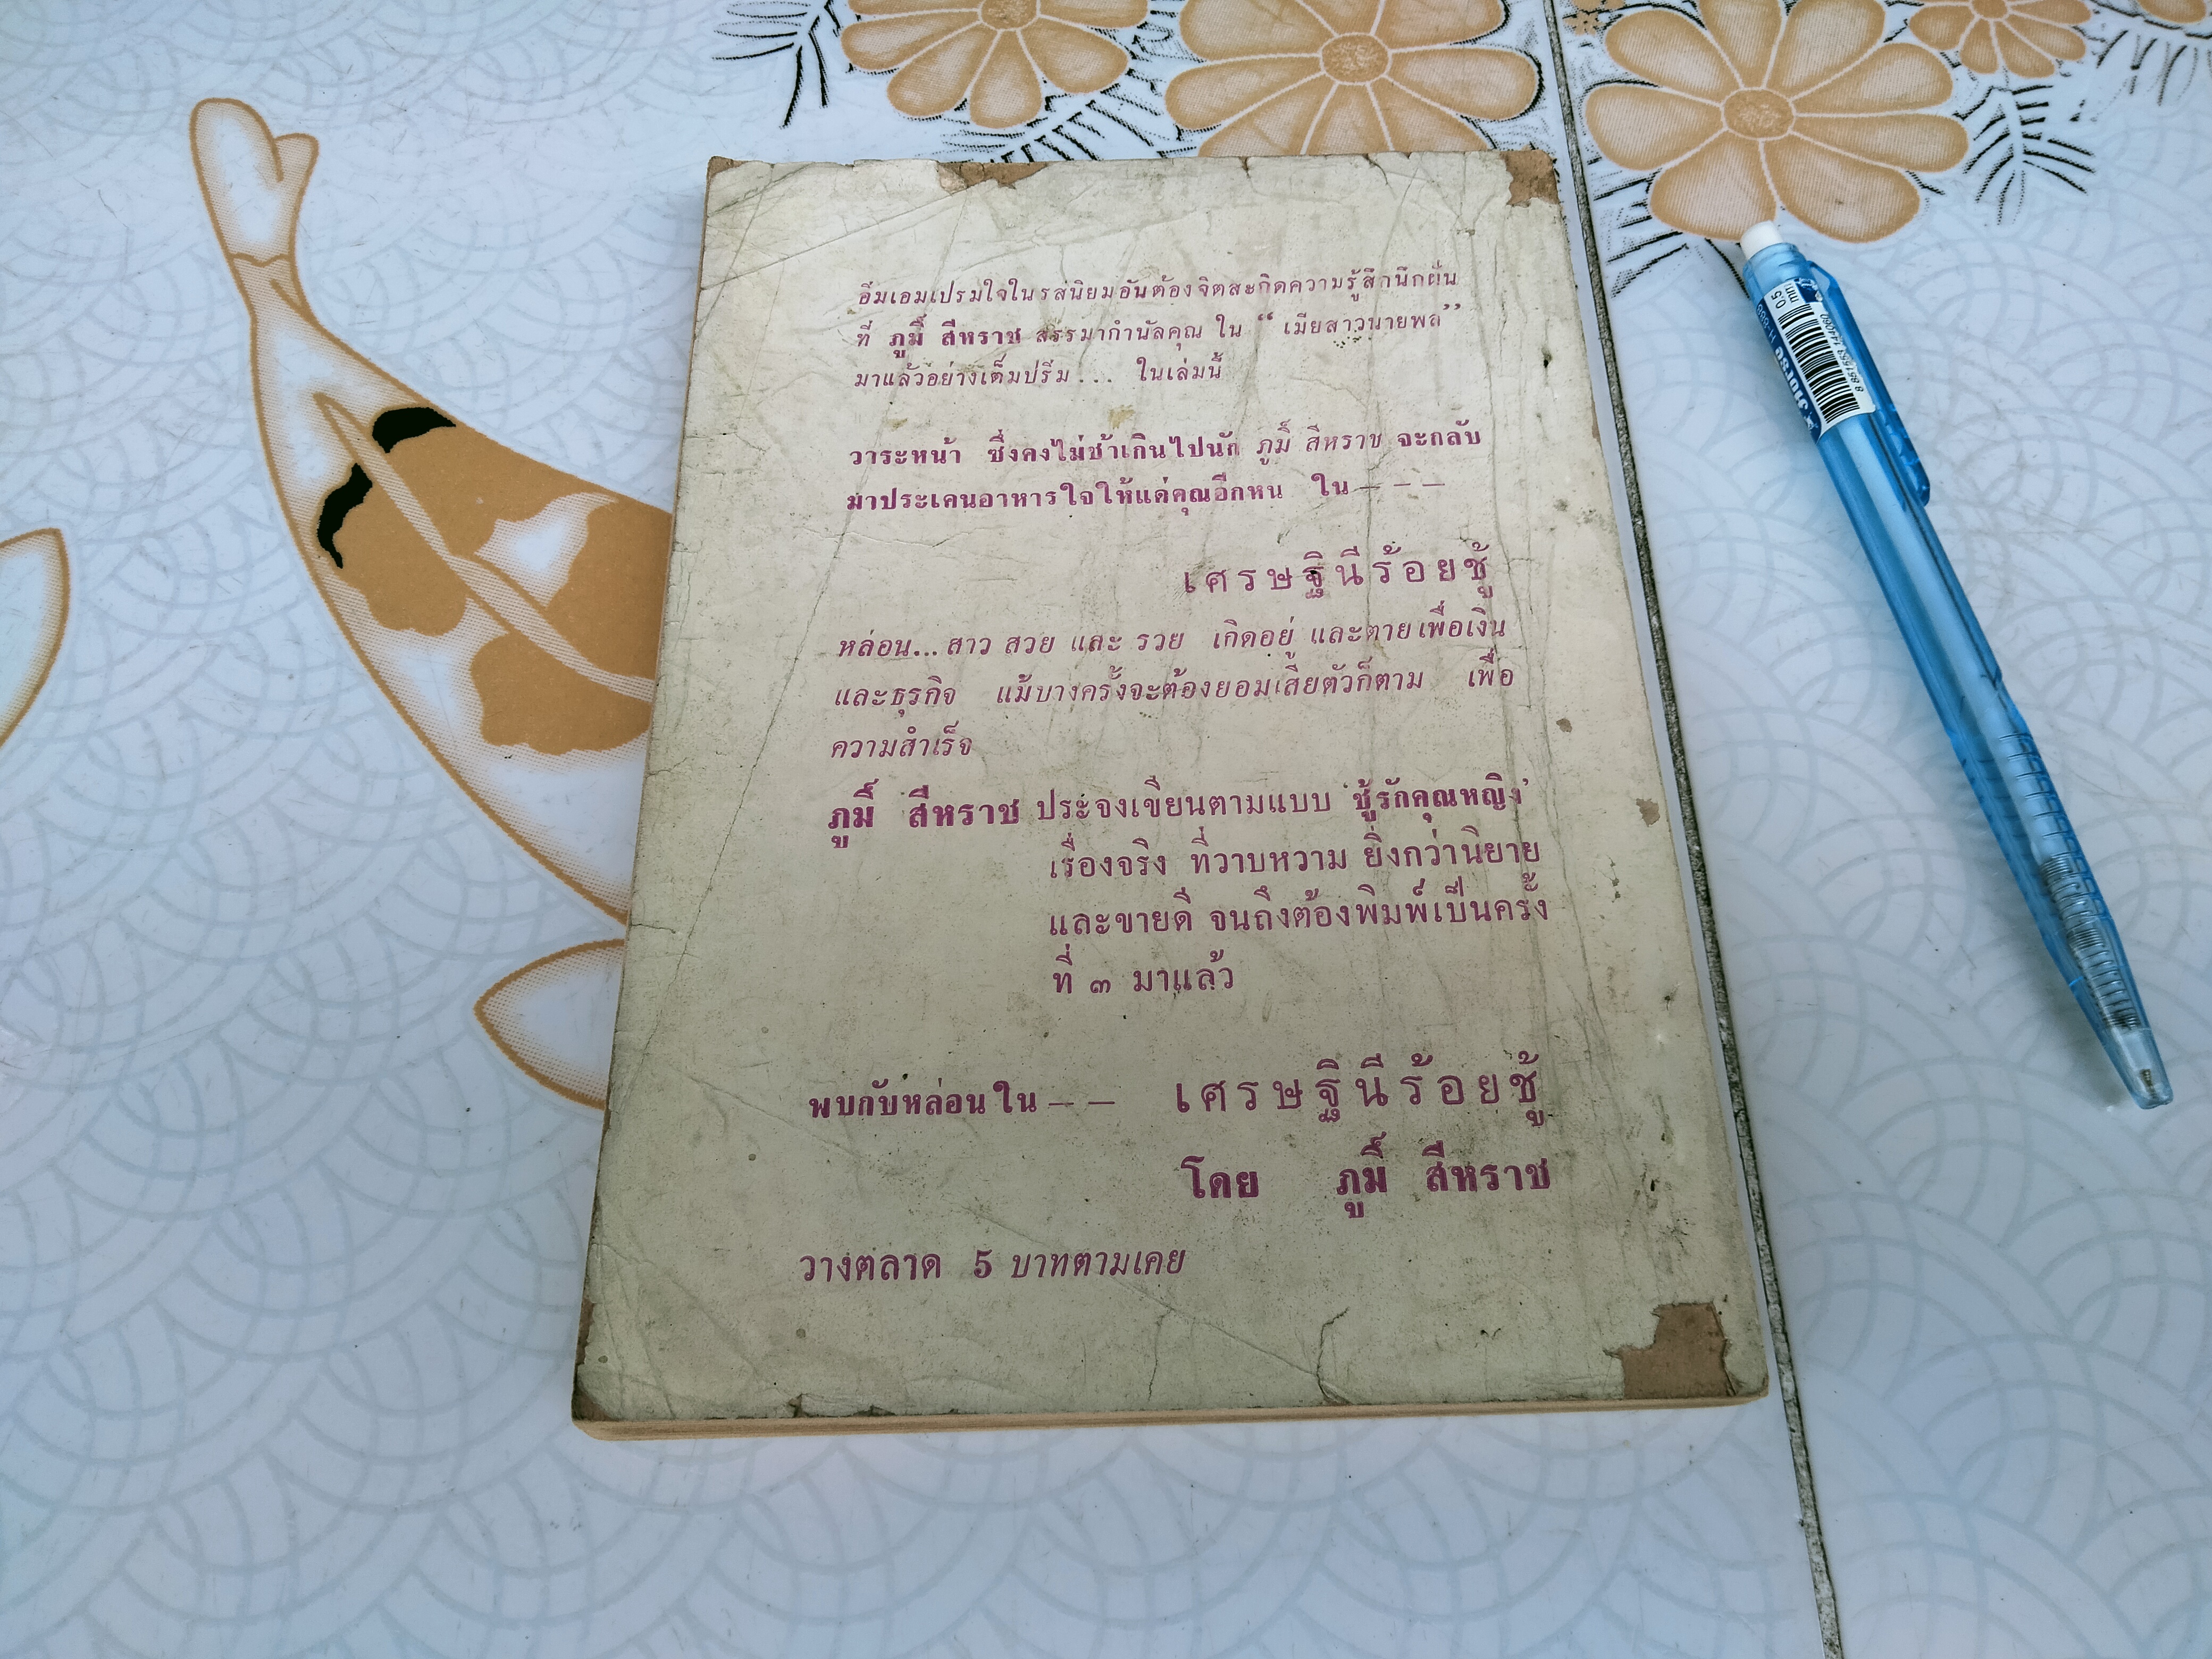 อิ่มเอมเปรมใจในรสนิยมอันต้องจิตสะกิดความรู้สึกนึกฝัน
ที่ ภูมิ์ สีหราช สรรมากำนัลคุณ ใน “ เมียสาวนายพล”
มาแล้วอย่างเต็มปรี่ม ... ในเล่มนี้
วาระหน้า ซึ่งคงไม่ช้าเกินไปนัก ภูมิ์ สีหราช จะกลับ
มาประเคนอาหารใจให้แด่คุณอีกหน ใน – – –
เศรษฐินีร้อยชู้
หล่อน...สาว สวย และ รวย เกิดอยู่ และตายเพื่อเงิน
และธุรกิจ แม้บางครั้งจะต้องยอมเสียตัวก็ตาม เพื่อ
ความสำเร็จ
ภูมิ์ สีหราช ประจงเขียนตามแบบ 'ชู้รักคุณหญิง'
เรื่องจริง ที่วาบหวาม ยิ่งกว่านิยาย
และขายดี จนถึงต้องพิมพ์เป็นครั้ง
ที่ ๓ มาแล้ว
พบกับหล่อนใน – – เศรษฐินีร้อยชู้
โดย ภูมิ์ สีหราช
วางตลาด 5 บาทตามเคย
Horse
H-888
0.5 mm.